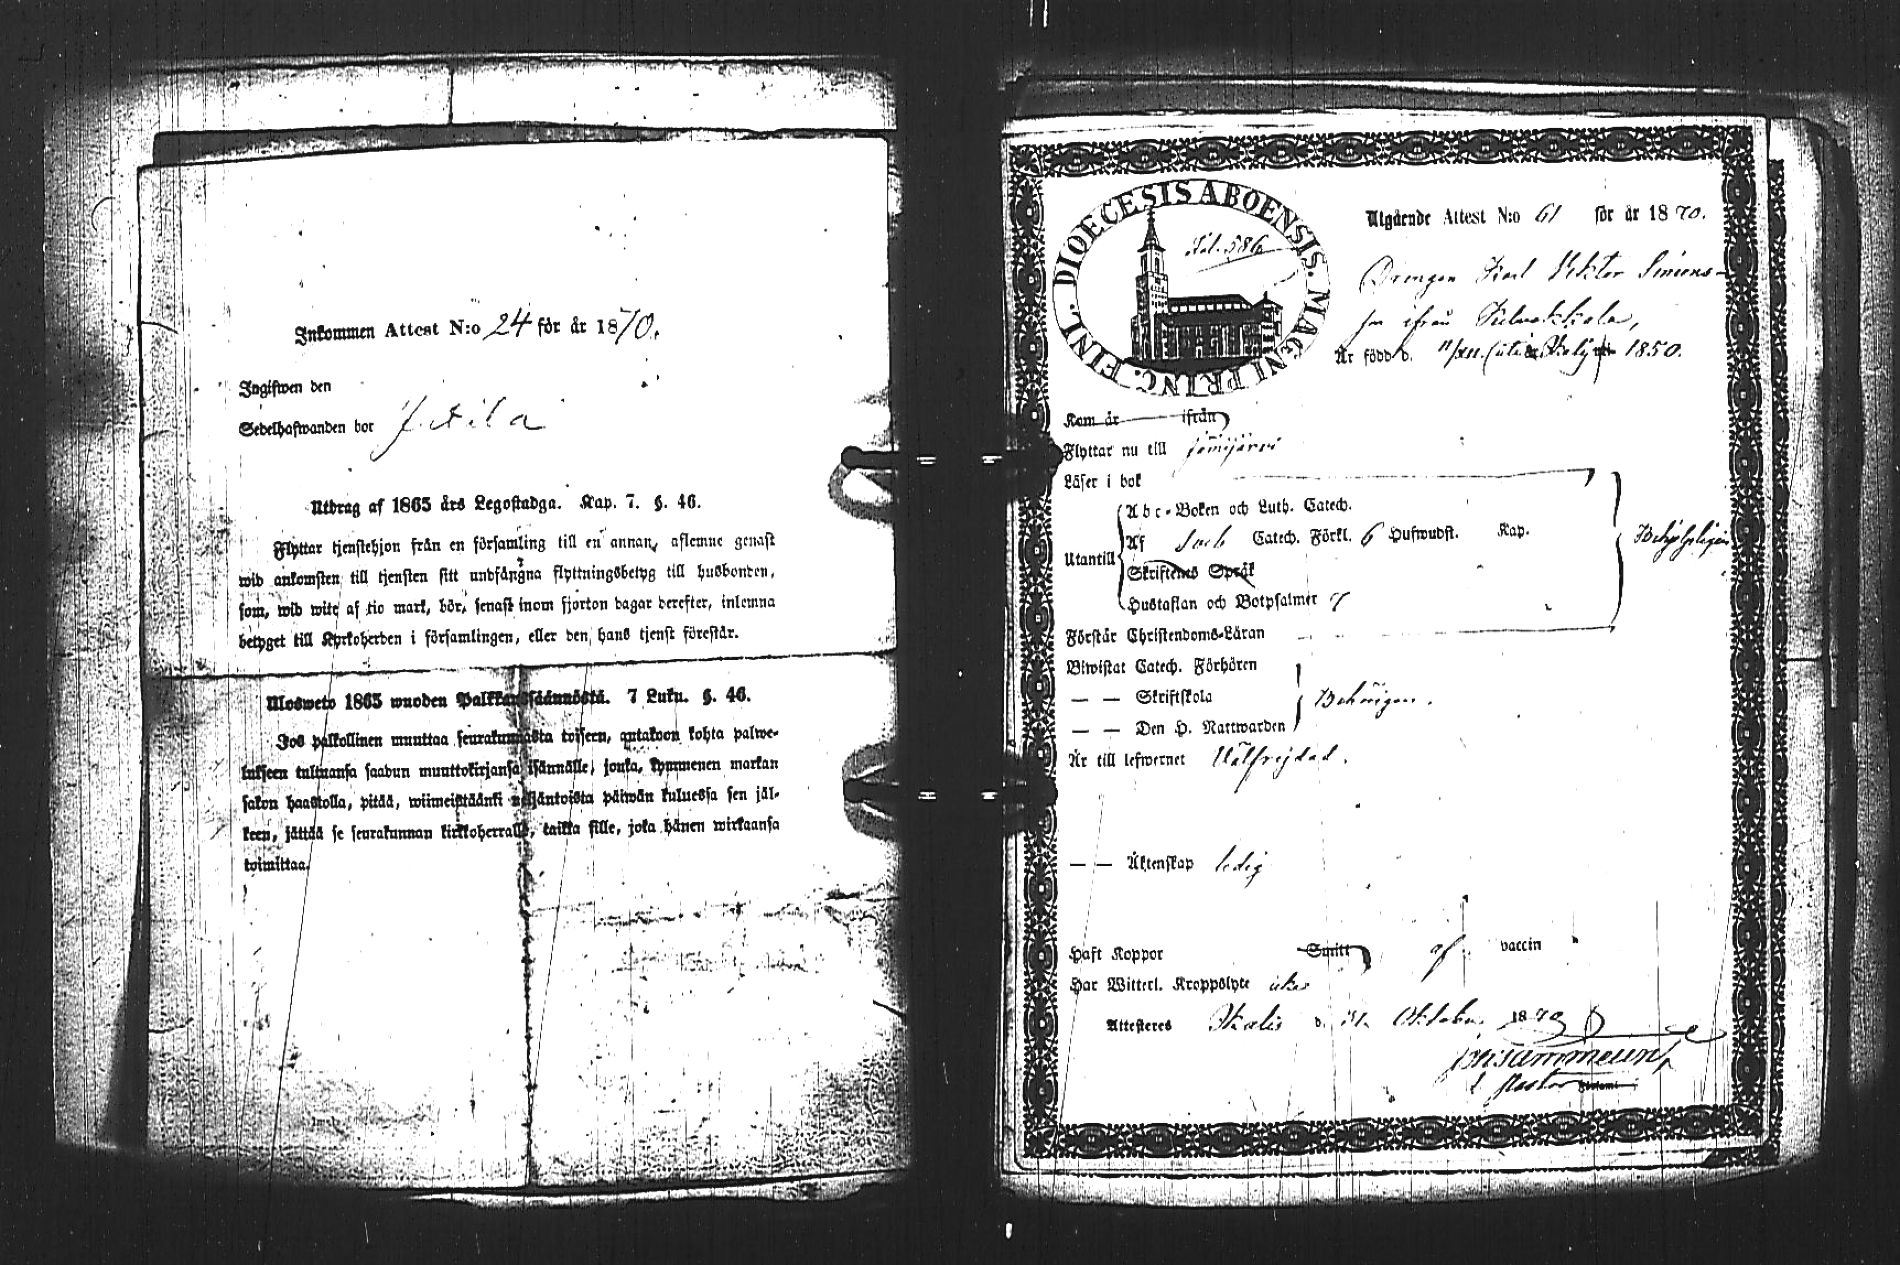 Inkommen Attest N:o 24 för år 1870.
Ingifwen den
Sedelhafwanden bor
Utdrag af 1865 års Legostadga. Kap. 7. §. 46.
Flyttar tjenstehjon från en församling till en annan, aflemne genast
wid ankomsten till tjensten sitt undfångna flyttningsbetyg till husbonden,
som, wid wite af tio mark, bör, senast inom fjorton dagar derefter, inlemna
betyget till Kyrkoherden i församlingen, eller den, hans tjenst förestår.
Ulosweto 1865 wuoden Palkkaussäännöstä. 7 Luku. §. 46.
Jos palkollinen muuttaa seurakunnasta toiseen, antakoon kohta palwe-
lukseen tulinansa saadun muuttokirjansa isännälle, jonka, kymmenen markan
sakon haastolla, pitää, wiimeistäänki neljäntoista päiwän kuluessa sen jäl-
keen, jättää se seurakunnan kirkkoherralle, taikka sille, joka hänen wirkaansa
toimittaa.
DIOECESIS ABOENSIS. MAGNI PRINC. FINL.
Fol. 586
Utgående Attest N:o 61 för år 1870.
Drengen Karl Viktor Simons-
son ifrån
Är född d. 11/XII 1850.
Kom år ifrån
Flyttar nu till Jämijärvi
Läser i bok
Abc-Boken och Luth. Catech.
Utantill
Af Catech. Förkl. 6 Hufwudst. Kap.
Skriftenes Språk
Hustaflan och Botpsalmer
Förstår Christendoms-Läran
Biwistat Catech. Förhören
— — Skriftskola
— — Den H. Nattwarden
Är till lefwernet Välfrejdad.
— — Äktenskap ledig
Haft Koppor Smitt af vaccin
Har Witterl. Kroppslyte
Attesteras d. 31 Oktober 1870
Pastor